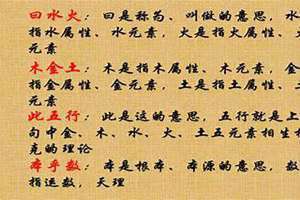 曰水火：曰是称为、叫做的意思，水
指水属性、水元素，火是指火属性、火
元素
木金土：木是指木属性、木元素，金
指金属性、金元素，土是指土属性、土
元素
此五行：此是这的意思，五行就是上
句中金、木、水、火、土五元素相生相
克的理论
本乎数：本是根本、本源的意思，数
指运数，天理